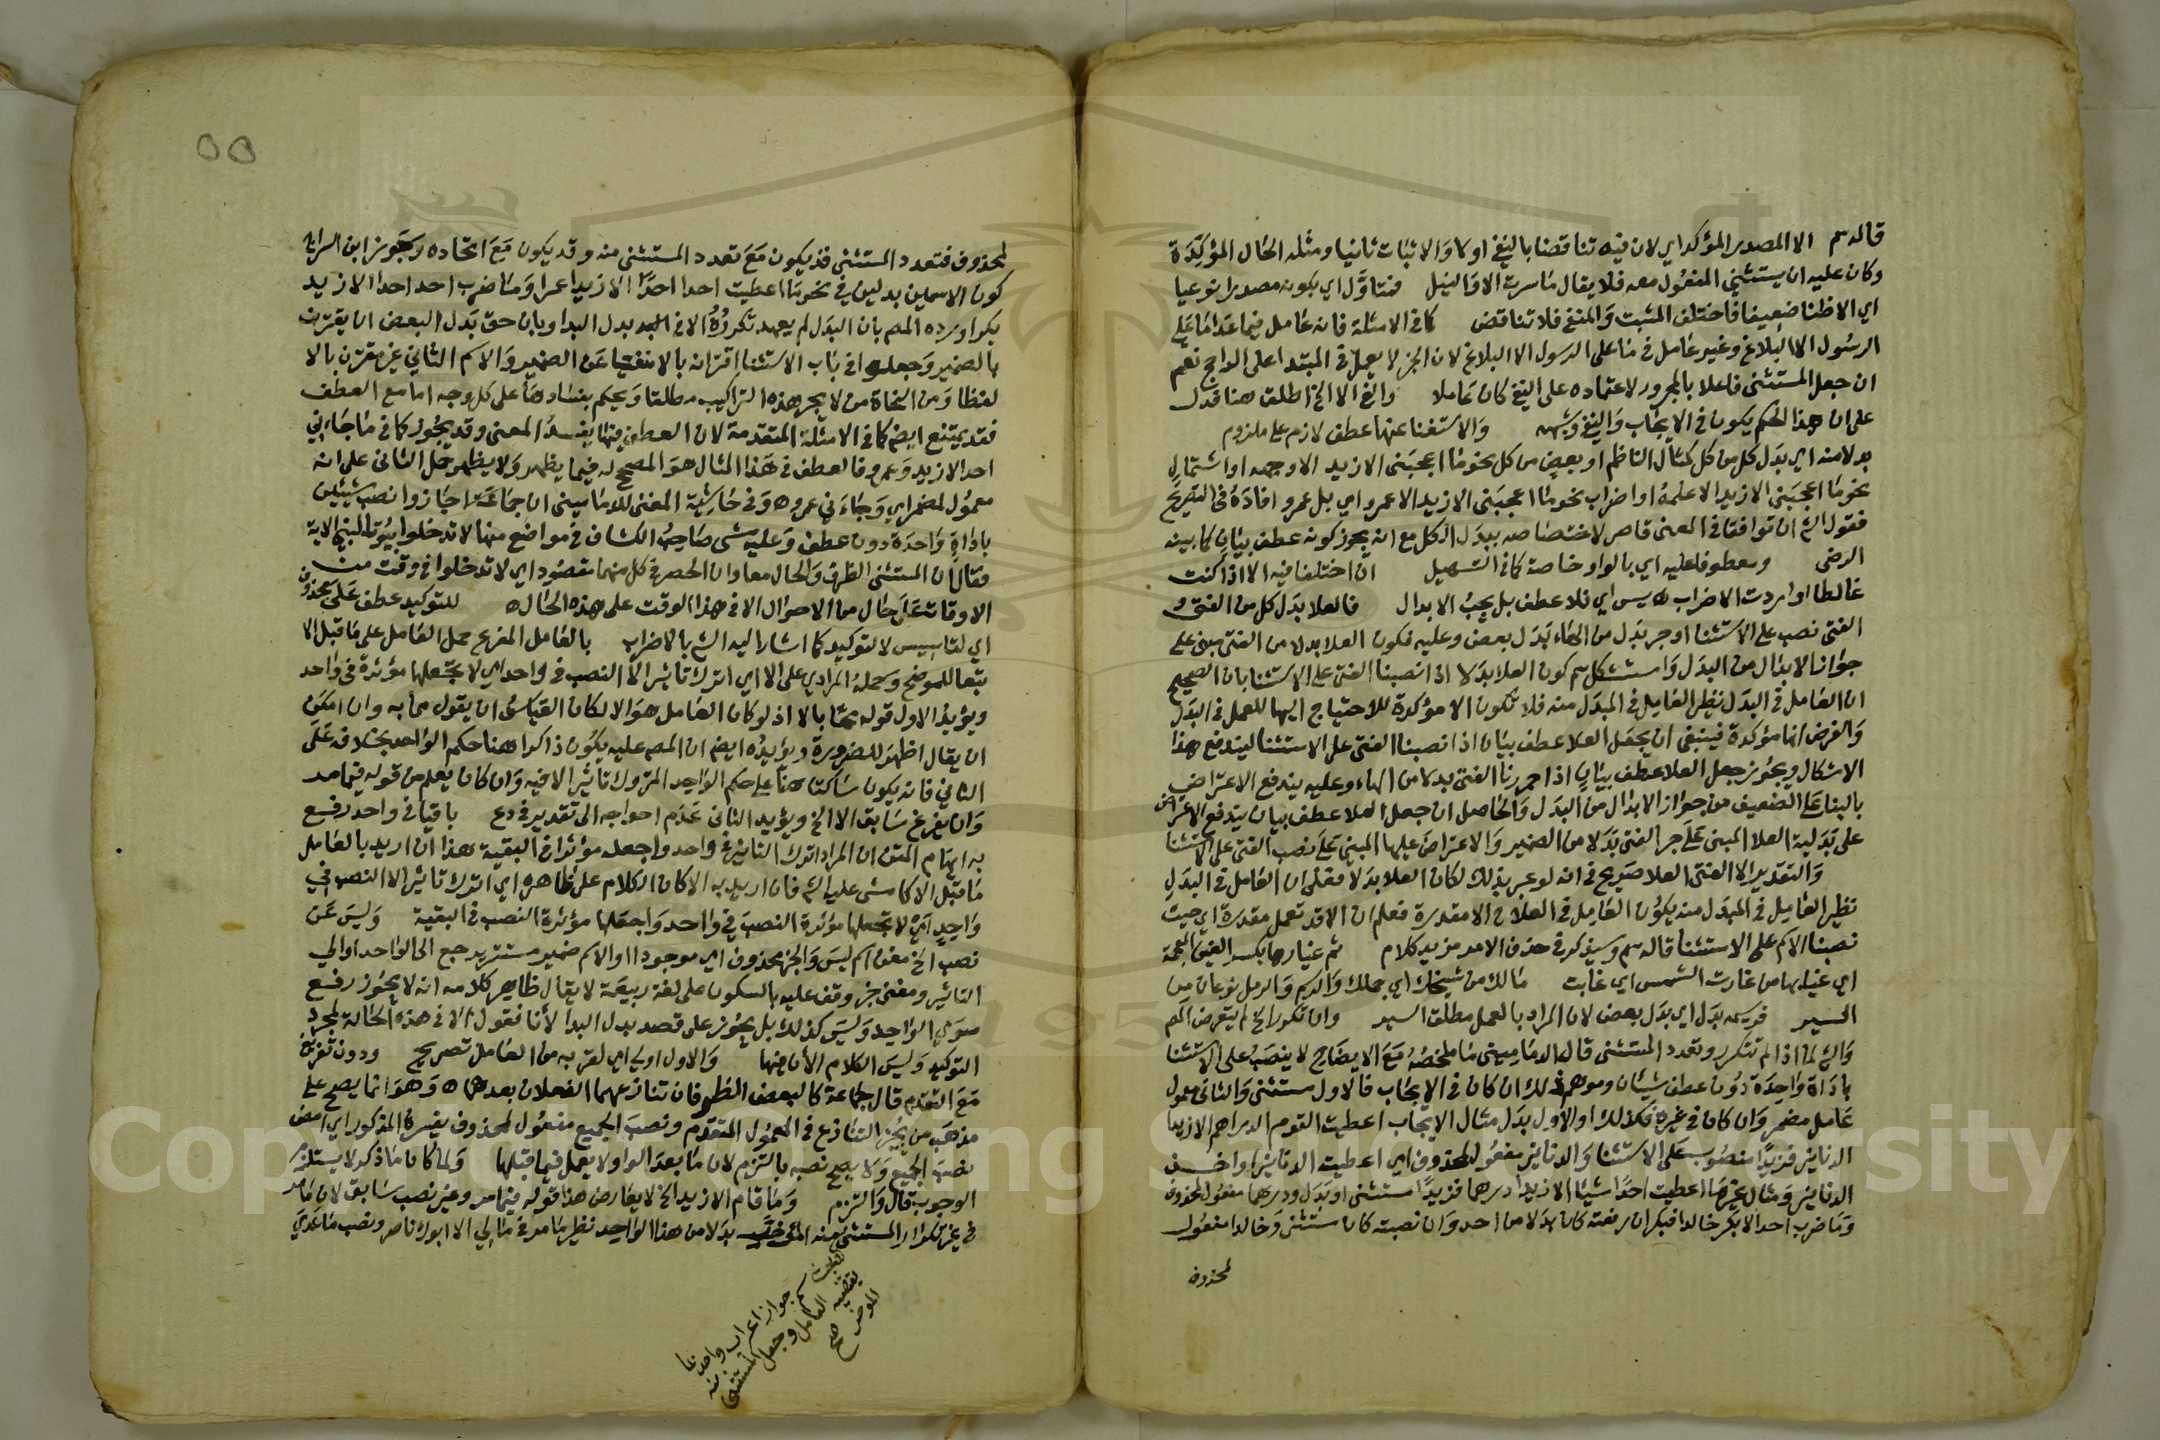 قاله سم الا المصدر المؤكد اي لان فيه تناقضا بالنفي اولا والاثبات ثانيا ومثله الحال المؤكدة
وكان عليه ان يستثني المفعول معه فلا يقال ما سرت الا والنيل فمتاول اي بكونه مصدرا نوعيا
اي الا ظنا ضعيفا فاختلف المثبت والمنفي فلا تناقض كما في الامثلة فانه عامل فيما عدا ما على
الرسول الا البلاغ وغير عامل في ما على الرسول الا البلاغ لان الخبر لا يعمل في المبتدا على الراجح نعم
ان جعل المستثنى فاعلا بالمجرور لاعتماده على النفي كان عاملا والغ الا الخ اطلق هنا فدل
على ان هذا الحكم يكون في الايجاب والنفي وشبهه والاستغنا عنها عطف لازم على ملزوم
بدلا منه اي بدل كل من كل كمثال الناظم او بعض من كل نحو ما اعجبني الا زيد الا وجهه او اشتمال
نحو ما اعجبني الا زيد الا علمه او اضراب نحو ما اعجبني الا زيد الا عمرو اي بل عمرو افاده في التصريح
فقول الش ان توافقا في المعنى قاصر لاختصاصه ببدل الكل مع انه يجوز كونه عطف بيان كما بينه
الرضى ومعطوفا عليه اي بالواو خاصة كما في التسهيل ان اختلفا فيه الا اذا كنت
غالطا او اردت الاضراب يس اي فلا عطف بل يجب الابدال فالعلا بدل كل من الفتى و
الفتى نصب على الاستثنا او جر بدل من الهاء بدل بعض وعليه فكون العلا بدلا من الفتى مبني على
جواز الابدال من البدل واستشكل سم كون العلا بدلا اذا نصبنا الفتى على الاستثنا بان الصحيح
ان العامل في البدل نظير العامل في المبدل منه فلا تكون الا مؤكدة للاحتياج اليها للعمل في البدل
والغرض انها مؤكدة فينبغي ان يجعل العلا عطف بيان اذا نصبنا الفتى على الاستثنا ليندفع هذا
الاشكال ويجوز جعل العلا عطف بيان اذا جررنا الفتى بدلا من الهاء وعليه يندفع الاعتراض
بالبناء على الضعيف من جواز الابدال من البدل والحاصل ان جعل العلا عطف بيان يندفع الاعتراض
على بدلية العلا المبني على جر الفتى بدلا من الضمير والاعتراض عليها المبني على نصب الفتى على الاستثنا
والتقدير الا الفتى العلا صريح في انه لو عبر بذلك لكان العلا بدلا فعلى ان العامل في البدل
نظير العامل في المبدل منه يكون العامل في العلا الا مقدرة فعلم ان الا قد تعمل مقدرة اي حيث
نصبنا الاسم على الاستثنا قاله سم وسيذكر في حذف الا مزيد كلام ثم غيارها بكسر الغين المعجمة
اي غيابها من غارت الشمس اي غابت مالك من شيخك اي جملك والرسيم والرمل نوعان من
السير فرسيمه بدل اي بدل بعض لان المراد بالعمل مطلق السير وان تكرر الخ لم يتعرض المص
والش لما اذا لم تتكرر وتعدد المستثنى قال الدماميني ما ملخصه مع الايضاح لا ينصب على الاستثنا
باداة واحدة دون عطف شيئان وموهم ذلك ان كان في الايجاب فالاول مستثنى والثاني معمول
عامل مضمر وان كان في غيره فكذلك او الاول بدل مثال الايجاب اعطيت القوم الدراهم الا زيدا
الدنانير فزيدا منصوب على الاستثنا والدنانير مفعول لمحذوف اي اعطيت الدنانير او اخذ
الدنانير ومثال غيرها اعطيت احدا شيئا الا زيدا درهما فزيدا مستثنى او بدل ودرهما مفعول لمحذوف
وما ضرب احد الا بكر خالدا فبكر ان رفعته كان بدلا من احد وان نصبته كان مستثنى وخالدا مفعول
لمحذوف
٥٥
لمحذوف فتعدد المستثنى قد يكون مع تعدد المستثنى منه وقد يكون مع اتحاده وجوز ابن السراج
كون الاسمين بدلين في نحو ما اعطيت احدا احدا الا زيدا عمرا وما ضرب احد احدا الا زيد
بكرا ورده المص بان البدل لم يعهد تكرره الا في بدل البدا وبان حق بدل البعض ان يقترن
بالضمير وجعلوا في باب الاستثنا اقترانه بالا مغنيا عن الضمير والاسم الثاني غير مقترن بالا
لفظا ومن النحاة من لا يجيز هذه التراكيب مطلقا ويحكم بفسادها على كل وجه اما مع العطف
فقد يمتنع ايضا كما في الامثلة المتقدمة لان العطف فيها يفسد المعنى وقد يجوز كما في ما جاءني
احد الا زيد وعمرو فالعطف في هذا المثال هو المصحح له فيما يظهر ولا يظهر حمل الثاني على انه
معمول لمضمر اي وجاءني عمرو وفي حاشية المغني للدماميني ان جماعة اجازوا نصب شيئين
باداة واحدة دون عطف وعليه مشى صاحب الكشاف في مواضع منها لا تدخلوا بيوت النبي الاية
فقال ان المستثنى الظرف والحال معا وان الحصر في كل منهما مقصود اي لا تدخلوا في وقت من
الاوقات على حال من الاحوال الا في هذا الوقت على هذه الحال للتوكيد عطف على محذوف
اي لتاسيس لا لتوكيد كما اشار اليه الش بالاضراب بالعامل المفرغ حمل العامل على ما قبل الا
تبعا للموضح وحمله المرادي على الا اي اترك تاثير الا النصب في واحد اي لا تجعلها مؤثرة في واحد
ويؤيد الاول قوله مما بالا اذ لو كان العامل هو الا لكان القياس ان يقول مما به وان امكن
ان يقال اظهر للضرورة ويؤيده ايضا ان المص عليه يكون ذاكرا هنا حكم الواحد بخلافه على
الثاني فانه يكون ساكتا هنا على حكم الواحد المتروك تاثير الا فيه وان كان يعلم من قوله فيما مر
وان يفرغ سابق الا الخ ويؤيد الثاني عدم احواجه الى تقدير في دع باقيا في واحد رفع
به ايهام المتن ان المراد اترك التاثير في واحد واجعله مؤثرا في البقية هذا ان اريد بالعامل
ما قبل الا كما مشى عليه الش فان اريد به الا كان الكلام على ظاهره اي اترك تاثير الا النصب في
واحد اي لا تجعلها مؤثرة النصب في واحد واجعلها مؤثرة النصب في البقية وليس عن
نصب الخ مغن اسم ليس والخبر محذوف اي موجودا او الاسم ضمير مستتر يرجع الى الواحد او الى
التاثير ومغني خبر وقف عليه بالسكون على لغة ربيعة لا يقال ظاهر كلامه انه لا يجوز رفع
سوى الواحد وليس كذلك بل يجوز على قصد بدل البدا لانا نقول الا في هذه الحالة لمجرد
التوكيد وليس الكلام الان فيها والاول اولى اي لقربه من العامل تصريح ودون تفريغ
مع التقدم قال جماعة كالبعض الظرفان تنازعهما الفعلان بعدهما وهو انما يصح على
مذهب من يجيز التنازع في المعمول المتقدم ونصب الجميع مفعول لمحذوف يفسره المذكور اي امض
نصب الجميع ولا يصح نصبه بالتزم لان ما بعد الواو لا يعمل فيما قبلها ولما كان ما ذكر لا يستلزم
الوجوب قال والتزم وما قام الا زيد الخ لا يعارض هذا قوله فيما مر وغير نصب سابق لان ما مر
في غير تكرار المستثنى منه المؤخر بدلا من هذا الواحد نظير ما مر في مالي الا ابوك ناصر ونصب ما عدى
جواز اعراب واحد بما
يقتضيه العامل وجعل المستثنى منه
المؤخر صح